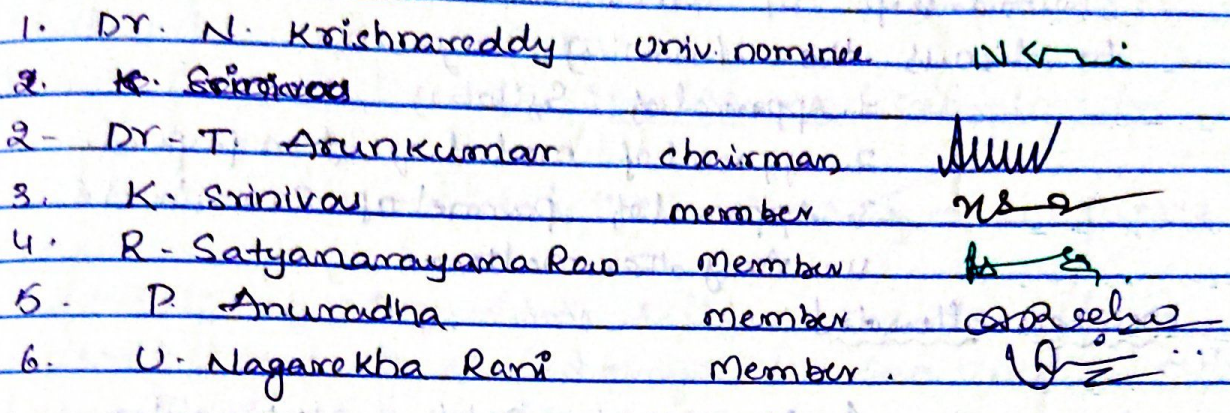 1. Dr. N. Krishnareddy Univ. nominee
2. K. Srinivas
2- Dr-T. Arunkumar chairman
3. K. Srinivas member
4. R-Satyanarayana Rao member
5. P. Anuradha member.
6. U. Nagarekha Rani member.